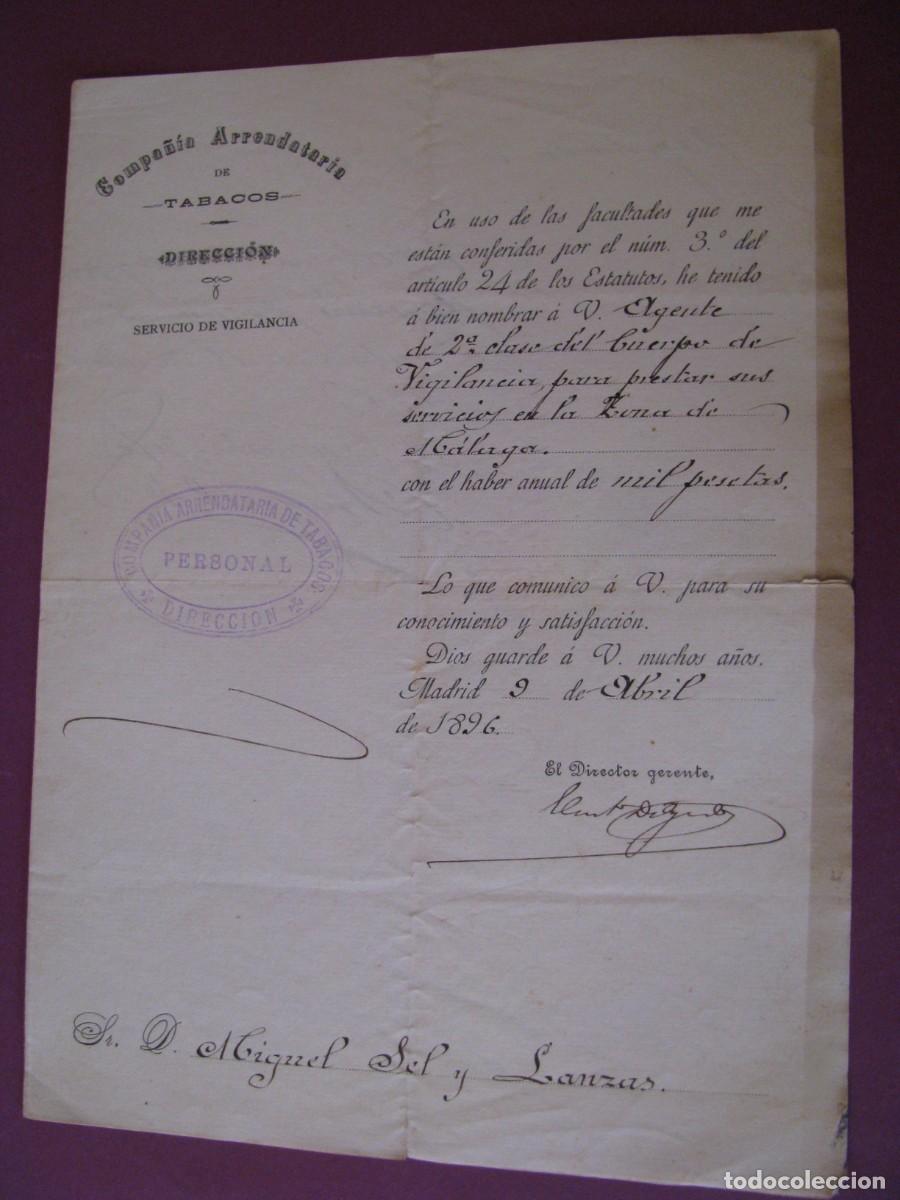 Compañía Arrendataria
DE
TABACOS
DIRECCIÓN
SERVICIO DE VIGILANCIA
En uso de las facultades que me
están conferidas por el núm. 3.º del
artículo 24 de los Estatutos, he tenido
á bien nombrar á V. Agente
de 2ª clase del Cuerpo de
Vigilancia, para prestar sus
servicios en la Zona de
Málaga.
con el haber anual de mil pesetas.
COMPAÑIA ARRENDATARIA DE TABACOS
PERSONAL
DIRECCION
Lo que comunico á V. para su
conocimiento y satisfacción.
Dios guarde á V. muchos años.
Madrid 9 de Abril
de 1896.
El Director gerente,
Sr. D. Miguel Sel y Lanzas.
todocoleccion